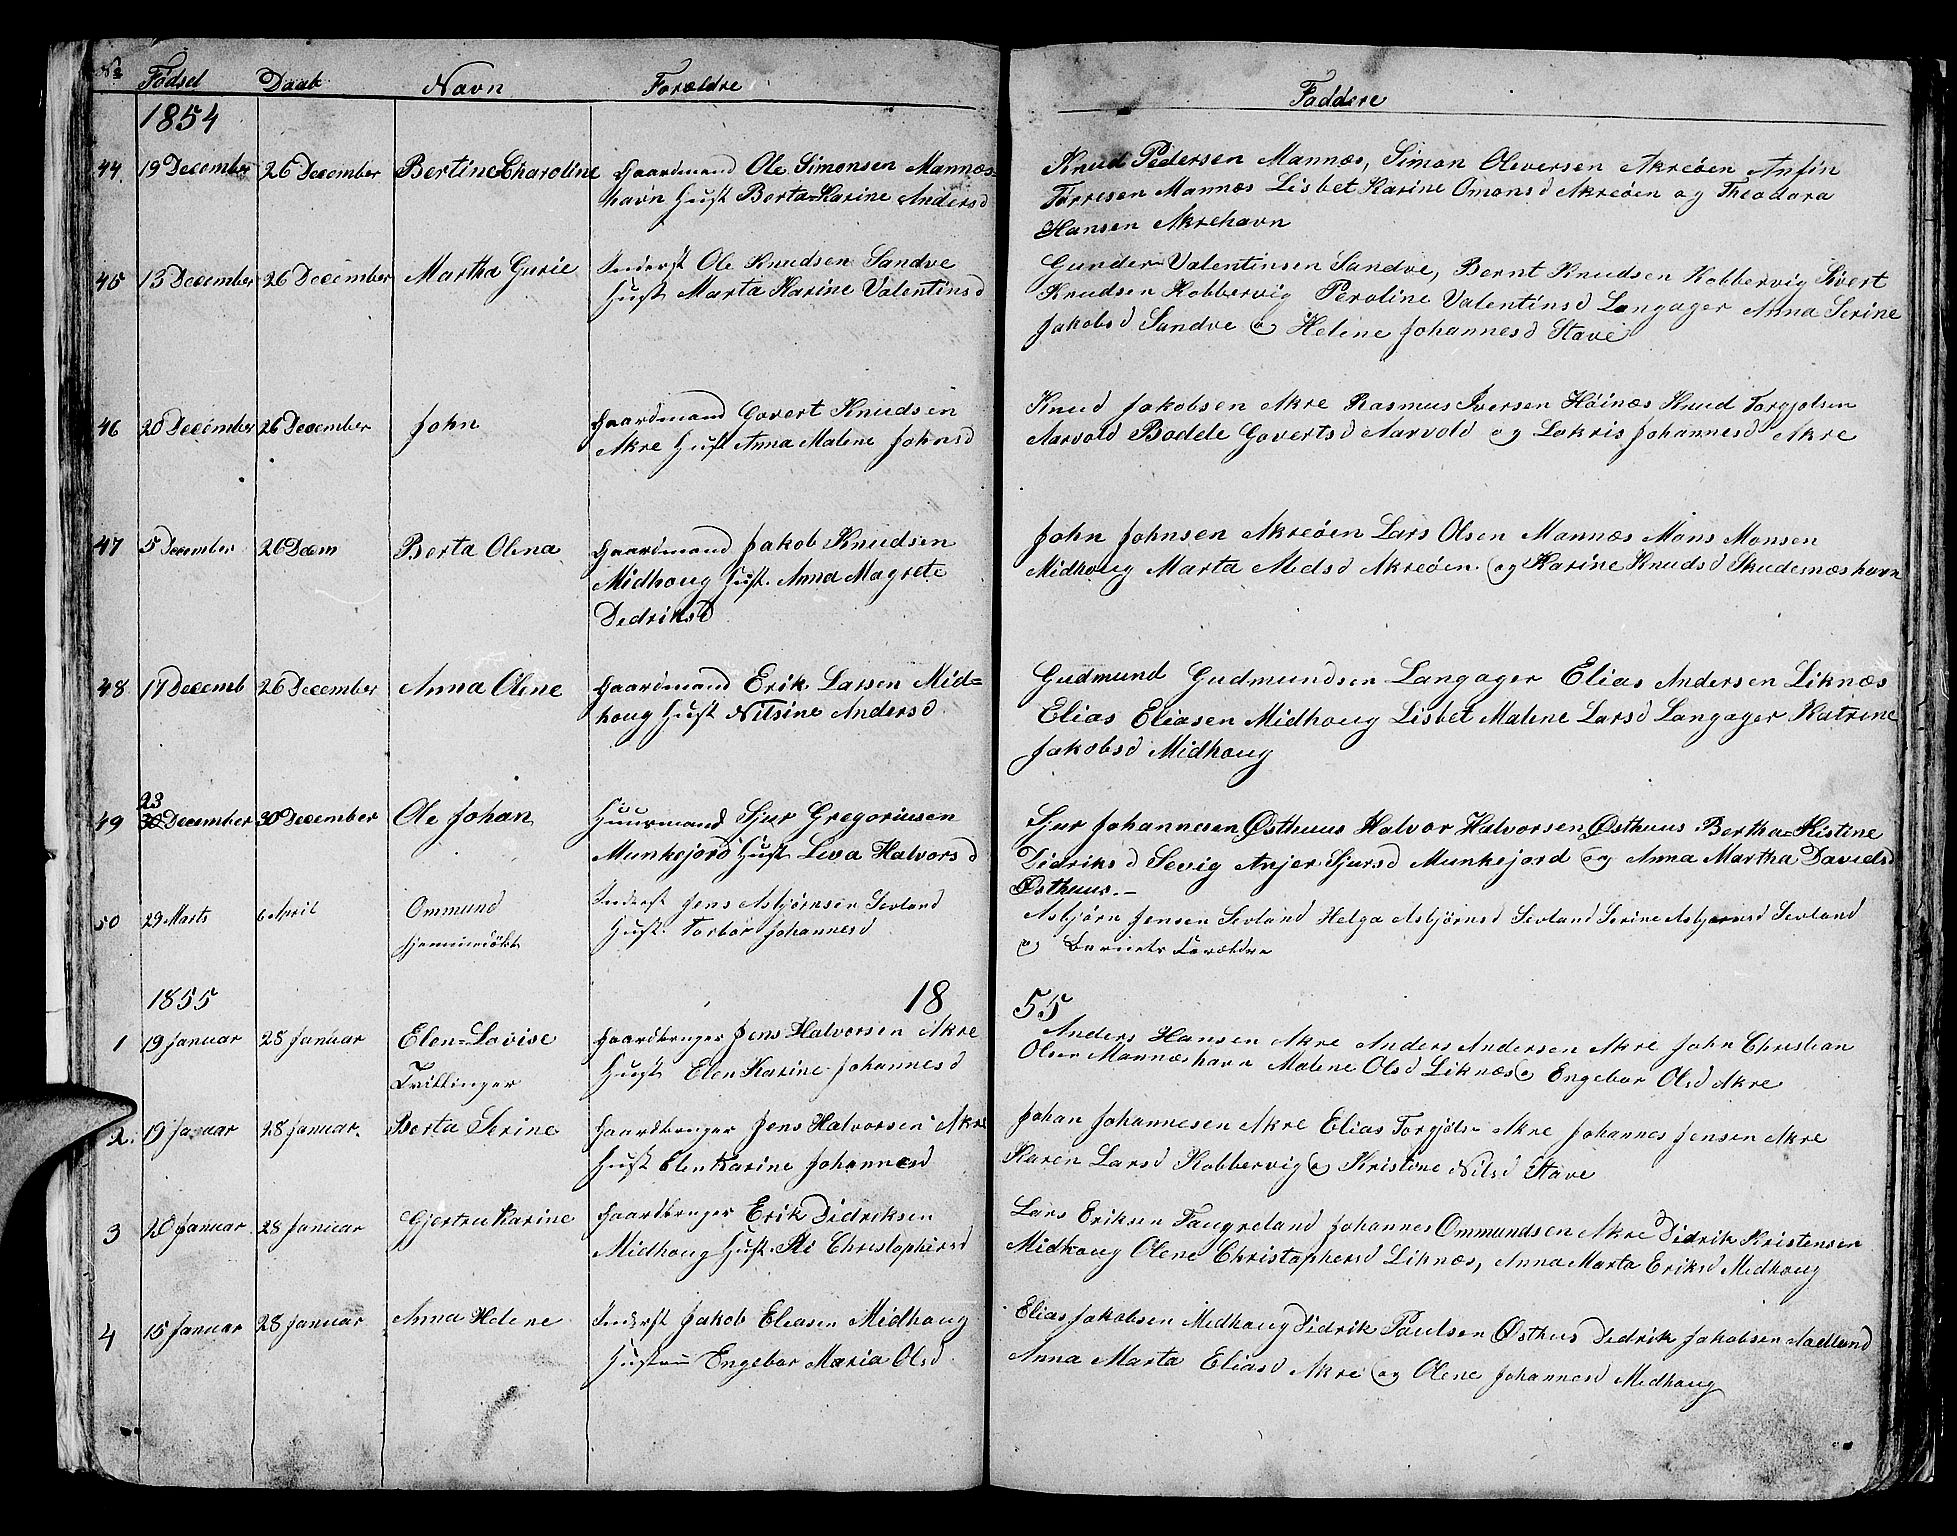 No Fødsel Daab Navn Forældre Faddere
1854
44. 19 December 26 December Bertine Charoline Gaardmand Ole Simonsen Mannæs=
havn Hust Berta Karine Andersd
Knud Pedersen Mannæs, Simon Oleversen Akreøen Anfin
Torresen Mannæs Lisbet Karine Omonsd Akreøen og Theodora
Hansen Akrehavn
45 13 December 26 December Martha Gurie Inderst Ole Knudsen Sandve
Hust Marta Karine Valentinsd
Gunder Valentinsen Sandve, Bernt Knudsen Kobbervig Sivert
Knudsen Kobbervig Peroline Valentinsd Langager Anna Serine
Jakobsd Sandve o Heline Johannesd Stave
46 20 December 26 December John Gaardmand Govert Knudsen
Akre Hust Anna Malene Johnsd
Knud Jakobsen Akre Rasmus Iversen Høinæs Knud Torgjolsen
Aarvold Bodele Govertsd Aarvold og Lokris Johannesd Akre
47 5 December 26 Decem Berta Olena Gaardmand Jakob Knudsen
Midhoug Hust. Anna Magrete
Dedriksd
John Johnsen Akreøen Lars Olsen Mannæs Mons Monsen
Midhoug Marta Aedsd Akreøen og Karine Knudsd Skudesnæshavn
48 17 Decemb 26 December Anna Olene Gaardmand Erik Larsen Mid=
houg Hust Nilsine Andersd
Gudmund Gudmundsen Langager Elias Andersen Liknæs
Elias Eliasen Midhoug Lisbet Malene Larsd Langager Katrine
Jakobsd Midhoug
23
49 30 December 30 December Ole Johan Huusmand Sjur Gregoriusen
Munkejord Hust Liva Halvorsd
Sjur Johannesen Østhuus Halvor Halvorsen Østhuus Bertha=Kistine
Didriksd Sevig Anjer Sjursd Munkejord og Anna Martha Davidsd
Østhuus.—
50 29 Marts 6 April Ommund Inderst Jens Asbjørnsen Sevland
hjemmedøbt Hust. Torbor Johannesd
Asbjørn Jensen Sevland Helga Asbjørnsd Sevland Serine Asbjørnsd Sevland
o Barnets Forældre
1855 18 55
1 19 Januar 28 Januar Elen=Lovise Gaardbruger Jens Halvorsen Akre
Tvillinger Hust Elen Karine Johannesd
Anders Hansen Akre Anders Andersen Akre John Christian
Olsen Mannæshavn Malene Olsd Liknæs o Engebor Olsd Akre
2. 19 Januar 28 Januar. Berta Serine Gaardbruger Jens Halvorsen Akre
Hust Elen Karine Johannesd
Johan Johannesen Akre Elias Torgjøls Akre Johannes Jensen Akre
Karen Larsd Kobbervig o Kristine Nilsd Stave
3 20 Januar 28 Januar Gjertru Karine Gaardbruger Erik Didriksen
Midhoug Hust. Christophersd
Lars Eriksen Johannes Ommundsen Akre Didrik Kristensen
Midhoug Olene Christophersd Liknæs, Anna Marta Eriksd Midhoug
4 15 Januar 28 Januar Anna Helene Inderst Jakob Eliasen Midhoug
Hustru Engebor Maria Olsd
Elias Jakobsen Midhoug Didrik Paulsen Østhus Dedrik Jakobsen Aadland
Anna Marta Eliasd Akre og Olene Johannesd Midhoug